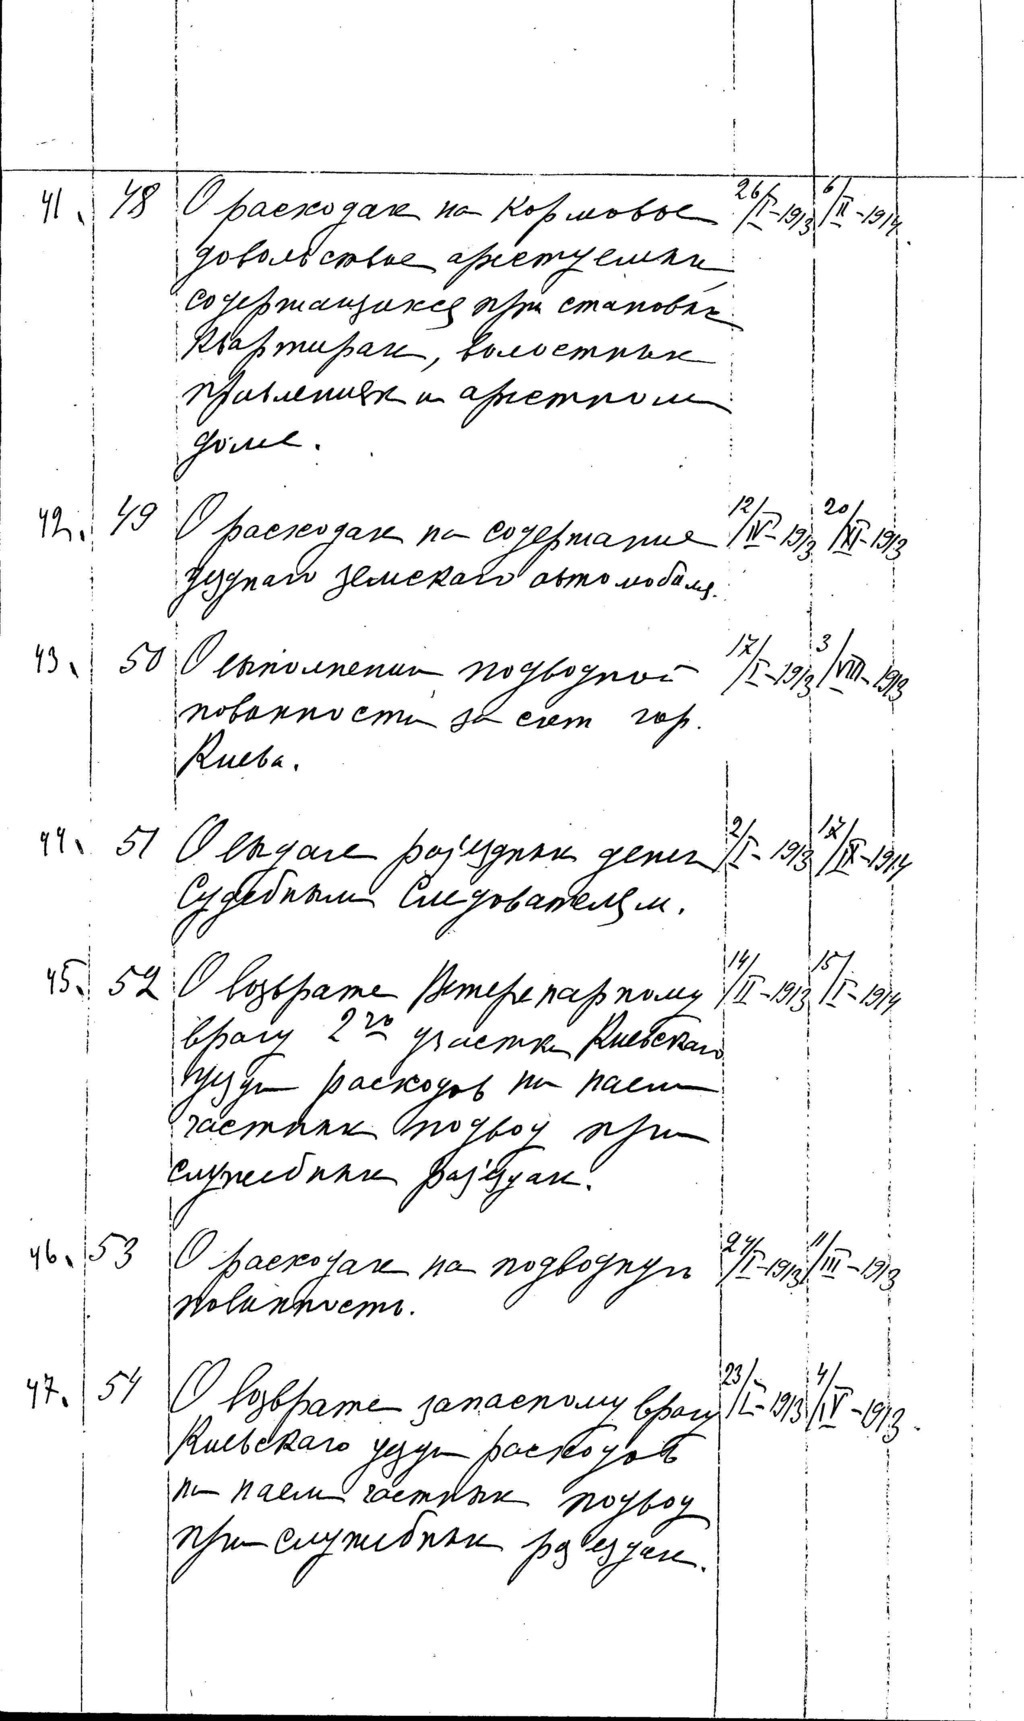 41. 48 О расходах на кормовое 26/I-1913 6/II-1914.
довольствие арестуемых
содержащихся при становых
квартирах, волостных
правлениях и арестном
доме.
42. 49 О расходах на содержание 12/IV-1913 20/XI-1913
уездного земского автомобиля.
43. 50 О выполнении подводной 17/I-1913 3/VIII-1913
повинности за счет гор.
Киева.
44. 51 О выдаче раз'ездных денег 2/I-1913 17/IX-1914
Судебным Следователям.
45. 52 О возврате Ветеренарному 14/II-1913 15/I-1914
врачу 2го участка Киевского
уезда расходов на наем
частных подвод при
служебных раз'ездах.
46. 53 О расходах на подводную 24/I-1913 11/III-1913
повинность.
47. 54 О возврате запасному врачу 23/I-1913 4/IV-1913.
Киевского уезда расходов
на наем частных подвод
при служебных раз'ездах.